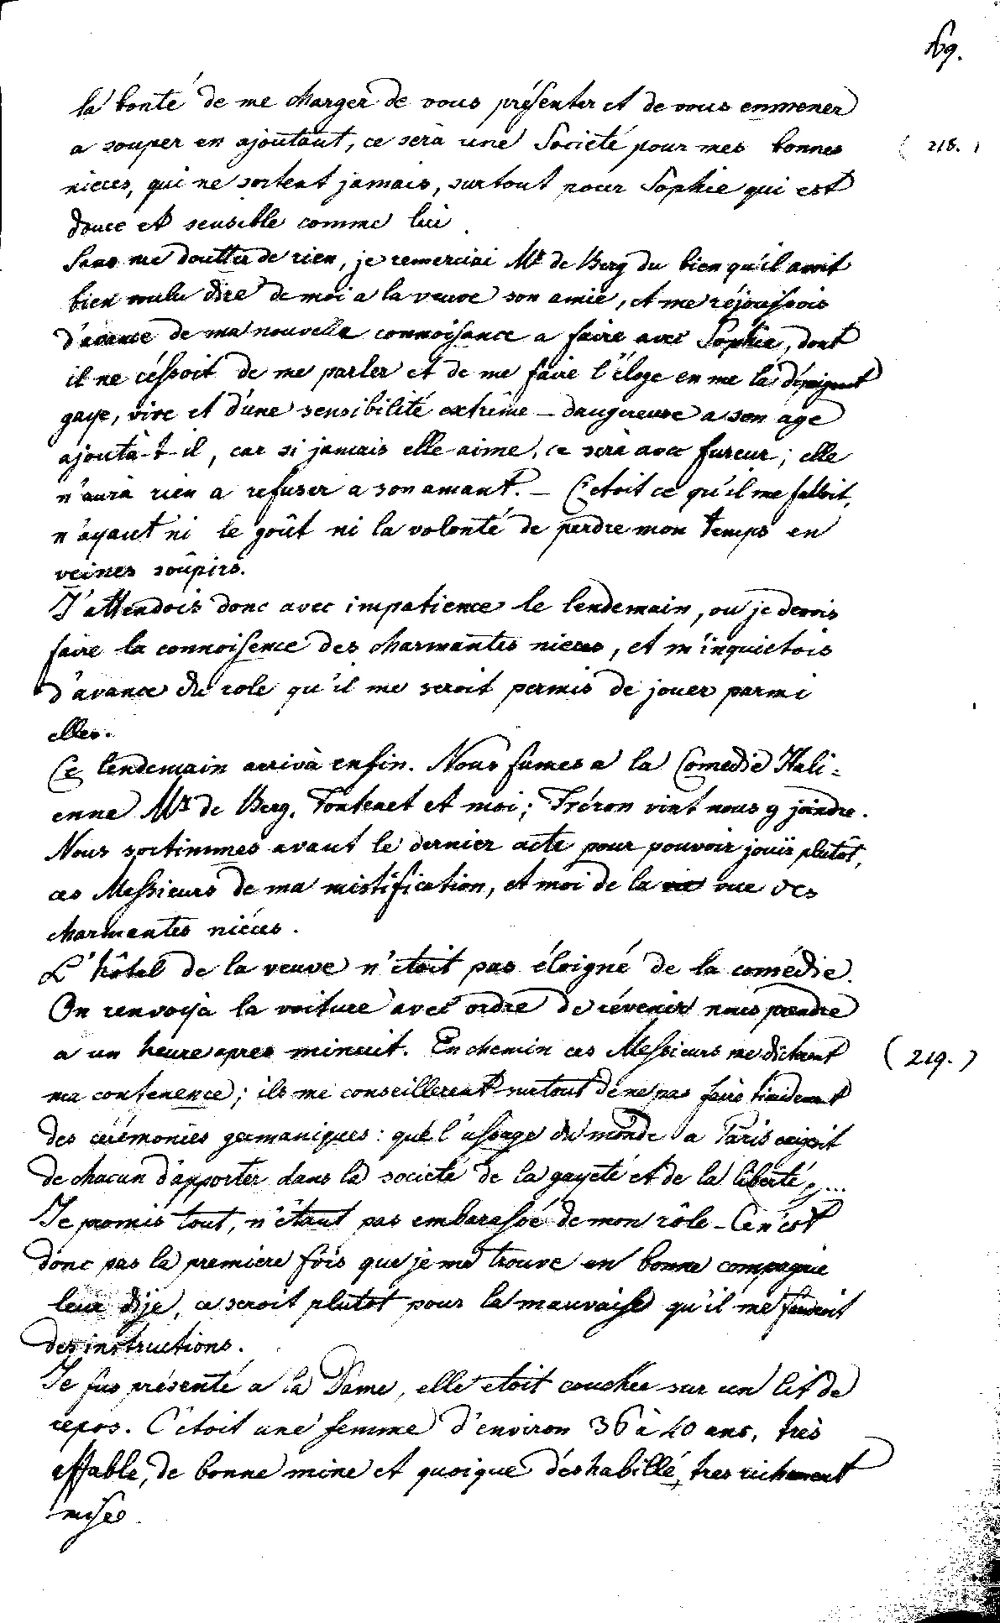 169.
la bonté de me charger de vous présenter et de vous emmener
a souper en ajoutant, ce serà une Societé pour mes bonnes
(218.)
nieces, qui ne sortent jamais, surtout pour Sophie qui est
douce et sensible comme lui.
Sans me doutter de rien, je remerciai Mr de Berg du bien qu'il avoit
bien voulu dire de moi a la veuve son amie, et me réjouissois
d'avance de ma nouvelle connoisance a faire avec Sophie, dont
il ne céssoit de me parler et de me faire l'éloge en me la dépeignant
gaye, vive et d'une sensibilité extrême – dangereuse a son age
ajoutà-t-il, car si jamais elle aime, ce serà avec fureur; elle
n'aurà rien a refuser a son amant. – C'etoit ce qu'il me falloit,
n'ayant ni le goût ni la volonté de perdre mon temps en
veines soûpirs.
J'attendois donc avec impatience le lendemain, ou je devois
faire la connoisence des charmantes nieces, et m'inquietois
d'avance du role qu'il me seroit permis de jouer parmi
elles.
Ce lendemain arrivà enfin. Nous fumes a la Comedie Itali=
enne Mr de Berg, Fontenet et moi; Fréron vint nous y joindre.
Nous sortimmes avant le dernier acte pour pouvoir jouïr plutôt,
ces Messieurs de ma mistification, et moi de la vue des
charmantes niéces.
L'hôtel de la veuve n'étoit pas éloigné de la comédie.
On renvoyà la voiture avec ordre de révenir nous prendre
a un heure apres minuit. En chemin ces Messieurs me dictoient
(219.)
ma contenence; ils me conseillerent surtout de ne pas faire timidement
des cérémonies germaniques: que l'ussage du monde a Paris exigeoit
de chacun d'apporter dans la societé de la gayeté et de la liberté,....
Je promis tout, n'étant pas embarassé de mon rôle – Ce n'est
donc pas la premiere fois que je me trouve en bonne compagnie
leur dije, ce seroit plutot pour la mauvaise qu'il me faudroit
des instructions.
Je fus présenté a la Dame, elle etoit couchée sur un lit de
repos. C'étoit une femme d'environ 36 à 40 ans, très
affable, de bonne mine et quoique déshabillé, tres richement
mise.